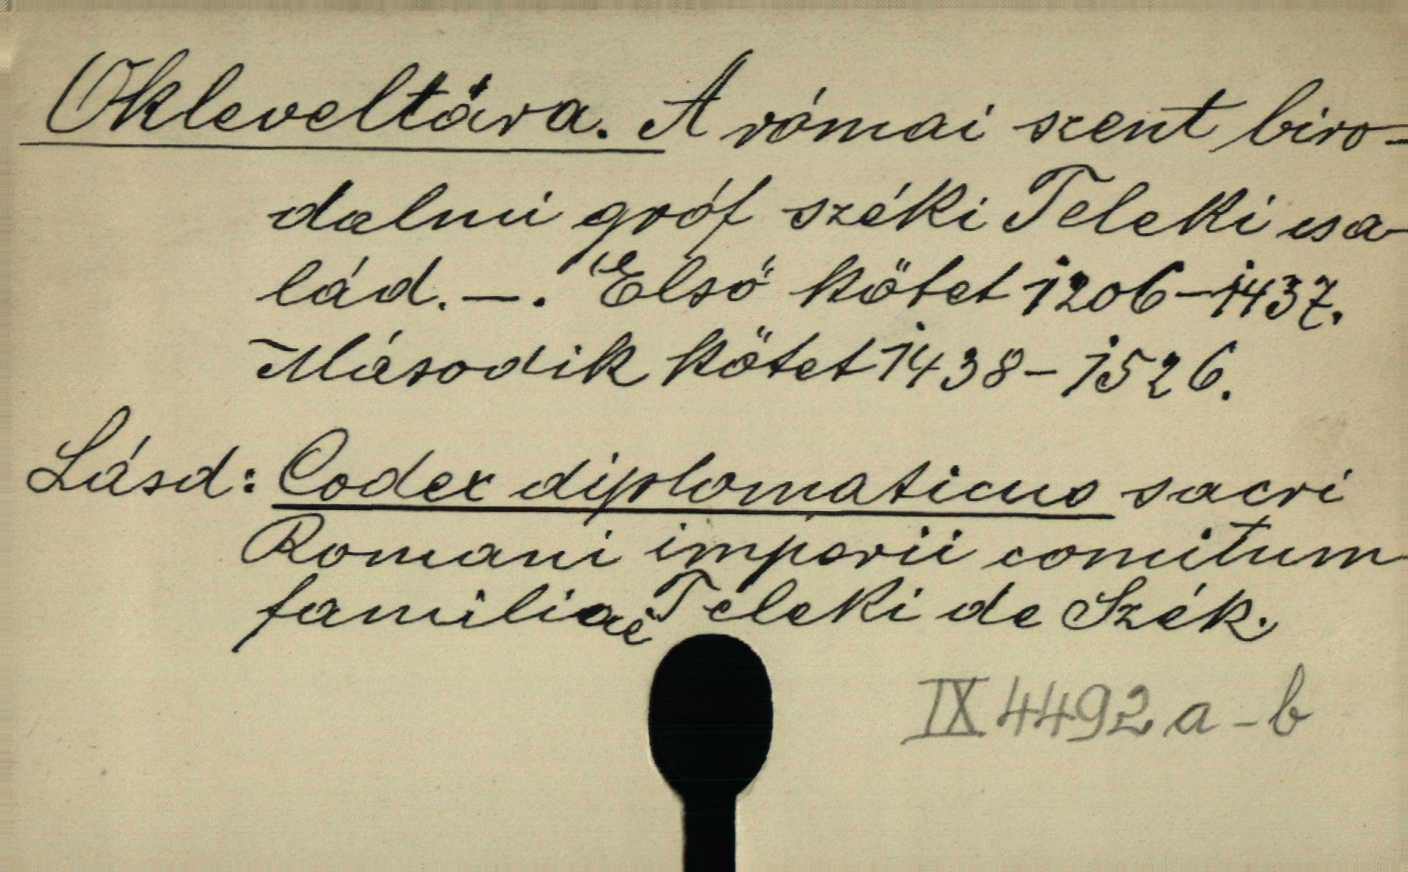 Okleveltára. A római szent biro-
dalmi gróf széki Teleki csa-
lád. —. Első kötet 1206–1437.
Második kötet 1438–1526.
Lásd: Codex diplomaticus sacri
Romani imperii comitum
familiae Teleki de Szék.
IX 4492 a-b